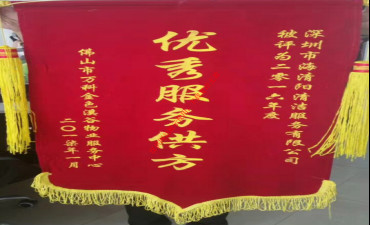 深圳市海清阳清洁服务有限公司
被评为二零一六年度
优秀服务供方
佛山市万科金色溪谷物业服务中心
二〇一柒年一月